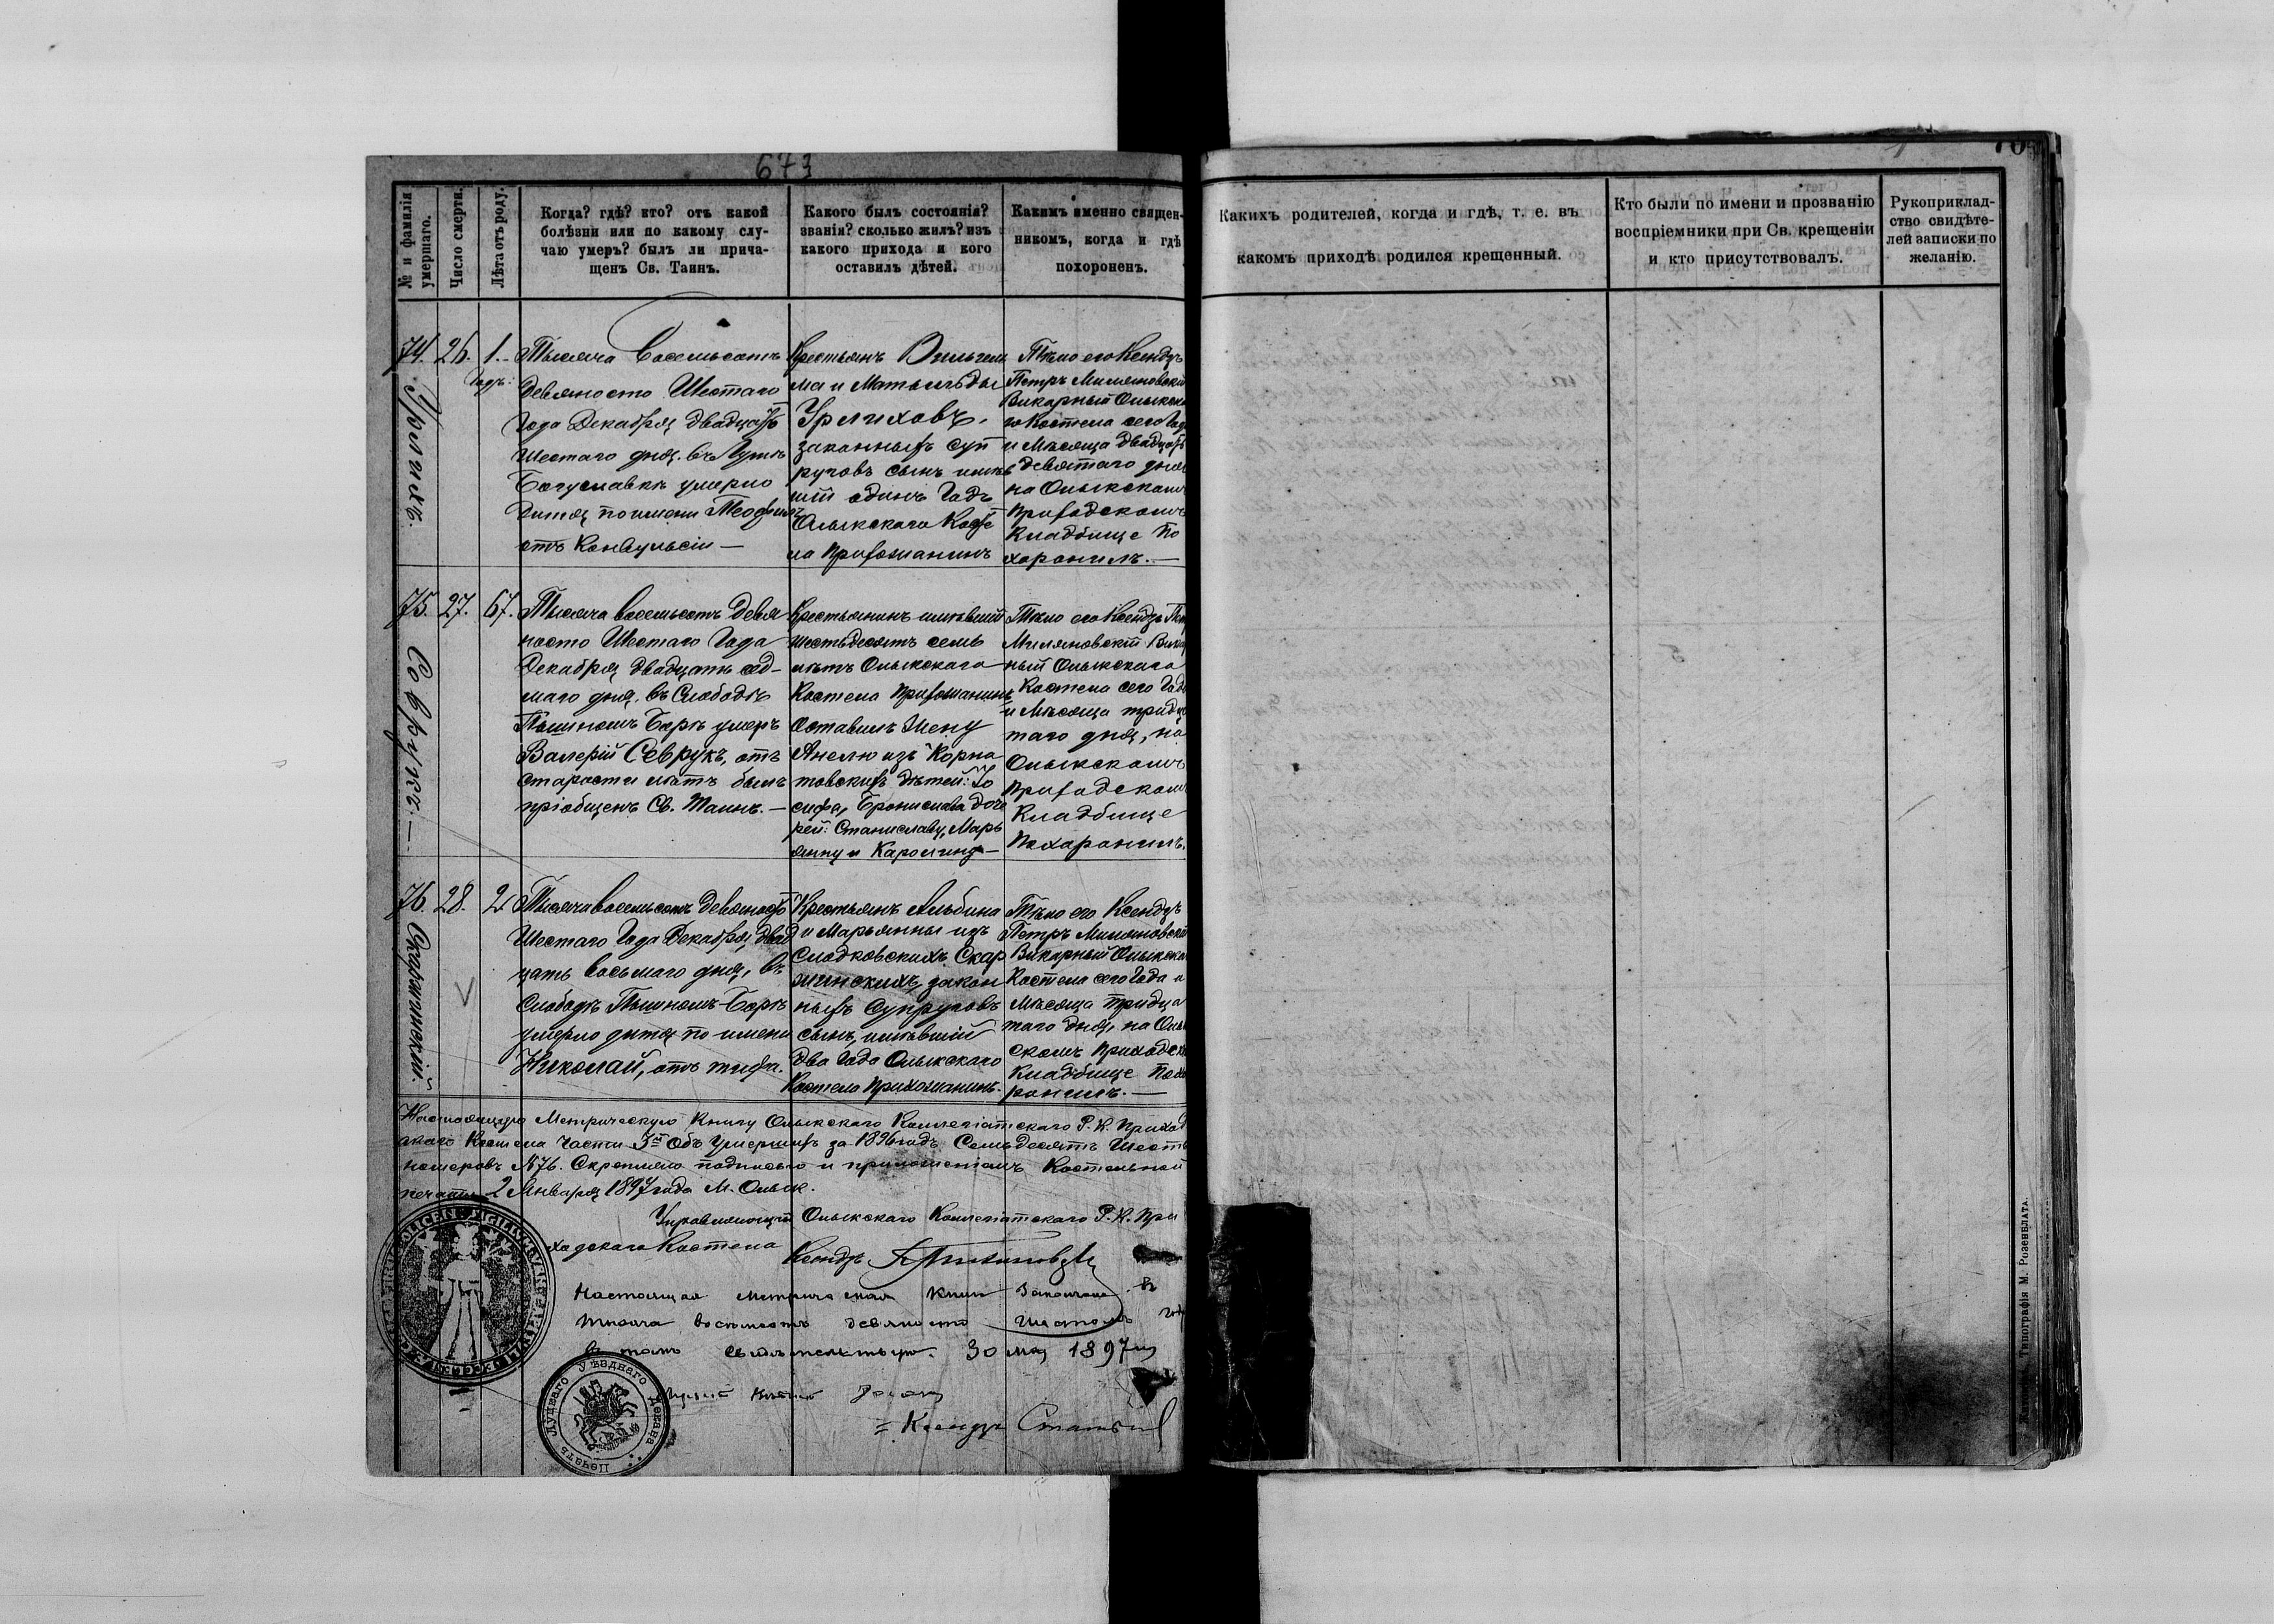 673
№ и фамилія умершаго.
Число смерти.
Лѣта отъ роду.
Когда? гдѣ? кто? отъ какой
болѣзни или по какому слу-
чаю умеръ? былъ ли прича-
щенъ Св. Таинъ.
Какого былъ состоянія?
званія? сколько жилъ? изъ
какого прихода и кого
оставилъ дѣтей.
Какимъ именно священ-
никомъ, когда и гдѣ
похороненъ.
74.
Урлихъ.
26.
1.
Годъ.
Тысяча восемьсотъ
девяносто Шестаго
Года Декабря двадцать
шестаго дня. въ
Богуславкѣ умерло
дитя по имени Теофилъ
отъ Конвульсіи —
Крестьянъ Вильгель
ма и Матыльды
Урлиховъ,
законныхъ суп
руговъ сынъ имѣв
шій одинъ Годъ
Олыкскаго Косте
ла прихожанинъ
Тѣло его Ксендзъ
Петръ Миляновскій
Викарный Олыкска
го Костела сего Года
и Мѣсяца двадцать
девятаго дня
на Олыкскомъ
приходскомъ
Кладбище по
хоронилъ. —
75.
Севрукъ. —
27.
67.
Тысяча восемьсотъ девя
носто Шестаго Года
Декабря двадцать сед-
маго дня, въ Слободѣ
Пьяномъ Борѣ умеръ
Валерій Севрукъ, отъ
старости лѣтъ былъ
пріобщенъ Св. Таинъ. —
Крестьянинъ имѣвшій
шестьдесятъ семь
лѣтъ Олыкскаго
Костела прихожанинъ
Оставилъ Жену
Анелю изъ Корна
товскихъ дѣтей: Іо
сифа, Бронислава доче
рей: Станиславу, Марь
янну и Каролину —
Тѣло его Ксендзъ Петръ
Миляновскій Викар
ный Олыкскаго
Костела сего Года
и Мѣсяца тридца
таго дня, на
Олыкскомъ
приходскомъ
Кладбище
похоронилъ.
76.
Скаржинскій.
28.
2
Тысяча восемьсотъ девяносто
Шестаго Года Декабря двад
цать восьмаго дня, въ
Слободѣ Пьяномъ-Борѣ
умерло дитя по имени
Николай, отъ тифа.
Крестьянъ Альбина
и Марьянны изъ
Сладковскихъ Скар
жинскихъ, закон
ныхъ Супруговъ
сынъ, имѣвшій
два Года Олыкскаго
Костела прихожанинъ.
Тѣло его Ксендзъ
Петръ Миляновскій
Викарный Олыкска
Костела сего Года и
Мѣсяца тридца
таго дня, на Олык
скомъ приходск
Кладбище похо
ронилъ. —
Настоящую Метрическую Книгу Олыкскаго Коллегіатскаго Р. К. Приход
скаго Костела Части 3й Объ Умершихъ за 1896 годъ Семьдесятъ Шесть
номеровъ №76. Скрепляю подписью и приложеніемъ Костельной
печати 2 Января 1897 года М. Олыка.
Управляющій Олыкскаго Коллегіатскаго Р. К. При
ходскаго Костела
Ксендзъ
Настоящая метрическая книга Закончена въ
тысяча восемьсотъ девяносто шестомъ году
въ томъ свидѣтельствую. 30 мая 1897 г
Ксендзъ
Печать Луцкаго Уѣзднаго Декана
Какихъ родителей, когда и гдѣ, т. е. въ
какомъ приходѣ родился крещенный.
Кто были по имени и прозванію
воспріемники при Св. крещеніи
и кто присутствовалъ.
Рукоприклад-
ство свидѣте-
лей записки по
желанію.
Типографія М. Розенблата.